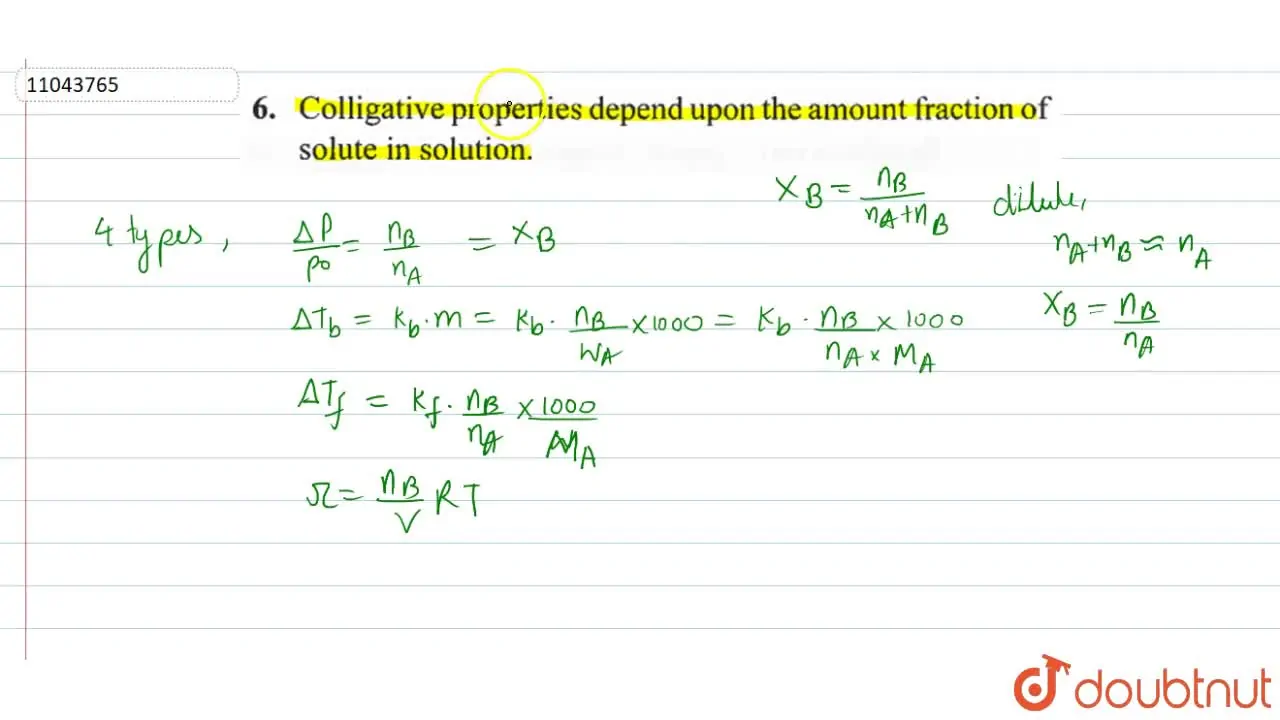 11043765
6. Colligative properties depend upon the amount fraction of
solute in solution.
X_B = n_B/(n_A+n_B) dilute,
4 types, ΔP/P⁰ = n_B/n_A = X_B
n_A+n_B ≈ n_A
ΔT_b = K_b·m = K_b·n_B/W_A × 1000 = K_b·(n_B × 1000)/(n_A × M_A)
X_B = n_B/n_A
ΔT_f = K_f·n_B/n_A × 1000/M_A
π = n_B/V RT
doubtnut